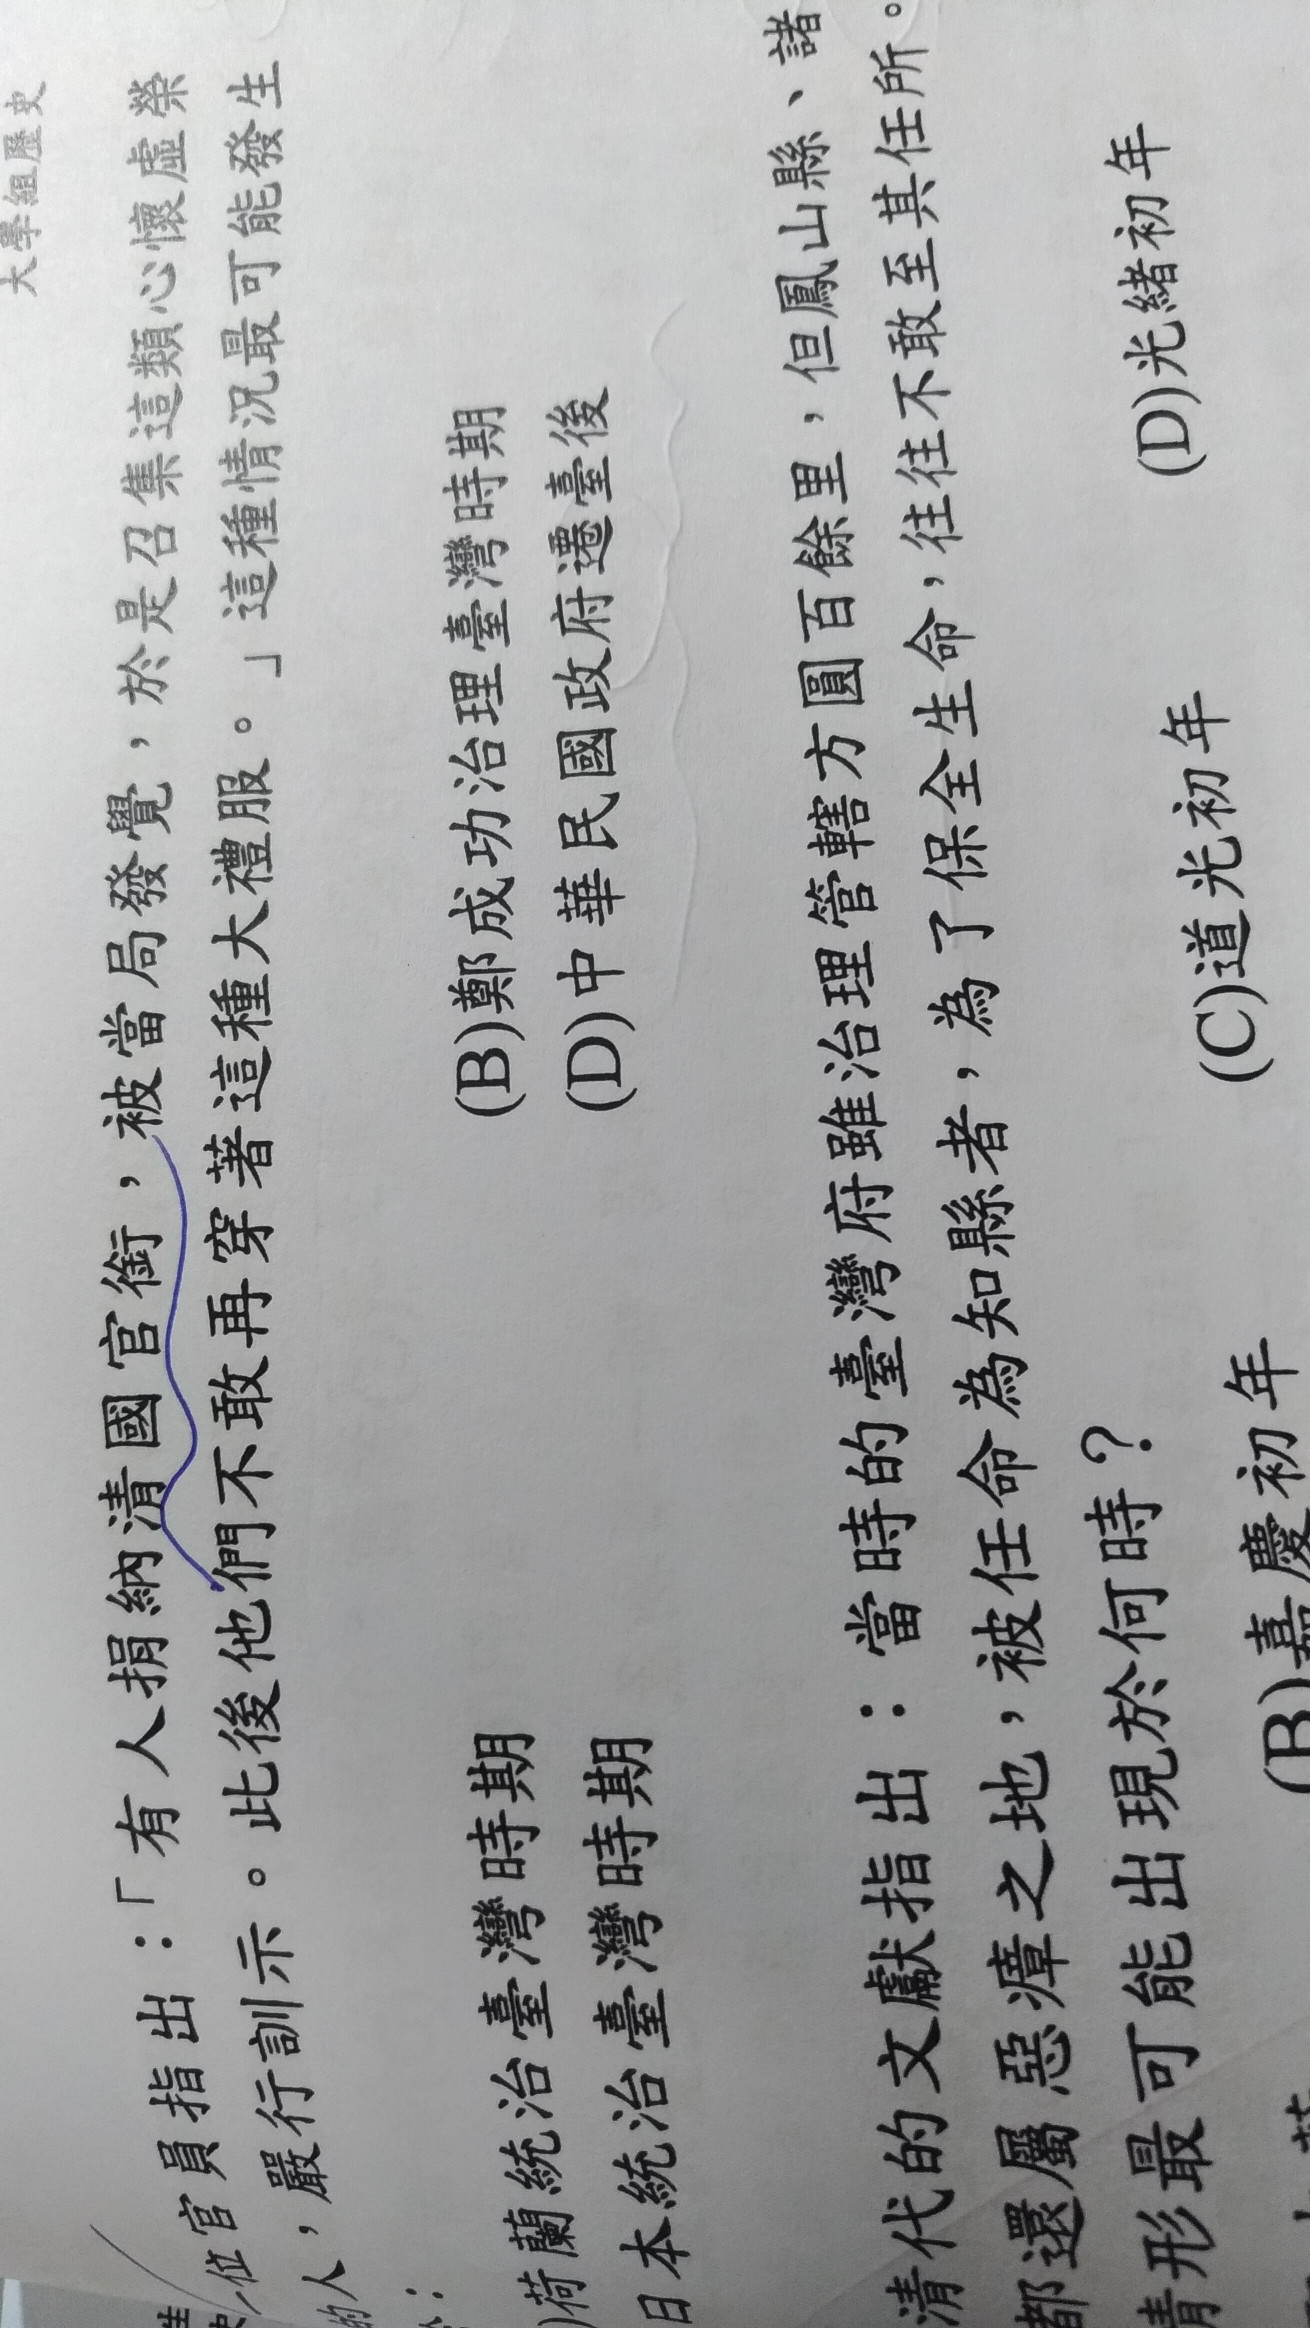 大學組歷史
位官員指出：「有人捐納清國官銜，被當局發覺，於是召集這類心懷虛榮
的人，嚴行訓示。此後他們不敢再穿著這種大禮服。」這種情況最可能發生
：
)荷蘭統治臺灣時期 (B)鄭成功治理臺灣時期
日本統治臺灣時期 (D)中華民國政府遷臺後
清代的文獻指出：當時的臺灣府雖治理管轄方圓百餘里，但鳳山縣、諸
都還屬惡瘴之地，被任命為知縣者，為了保全生命，往往不敢至其任所。
情形最可能出現於何時？
(B)嘉慶初年 (C)道光初年 (D)光緒初年